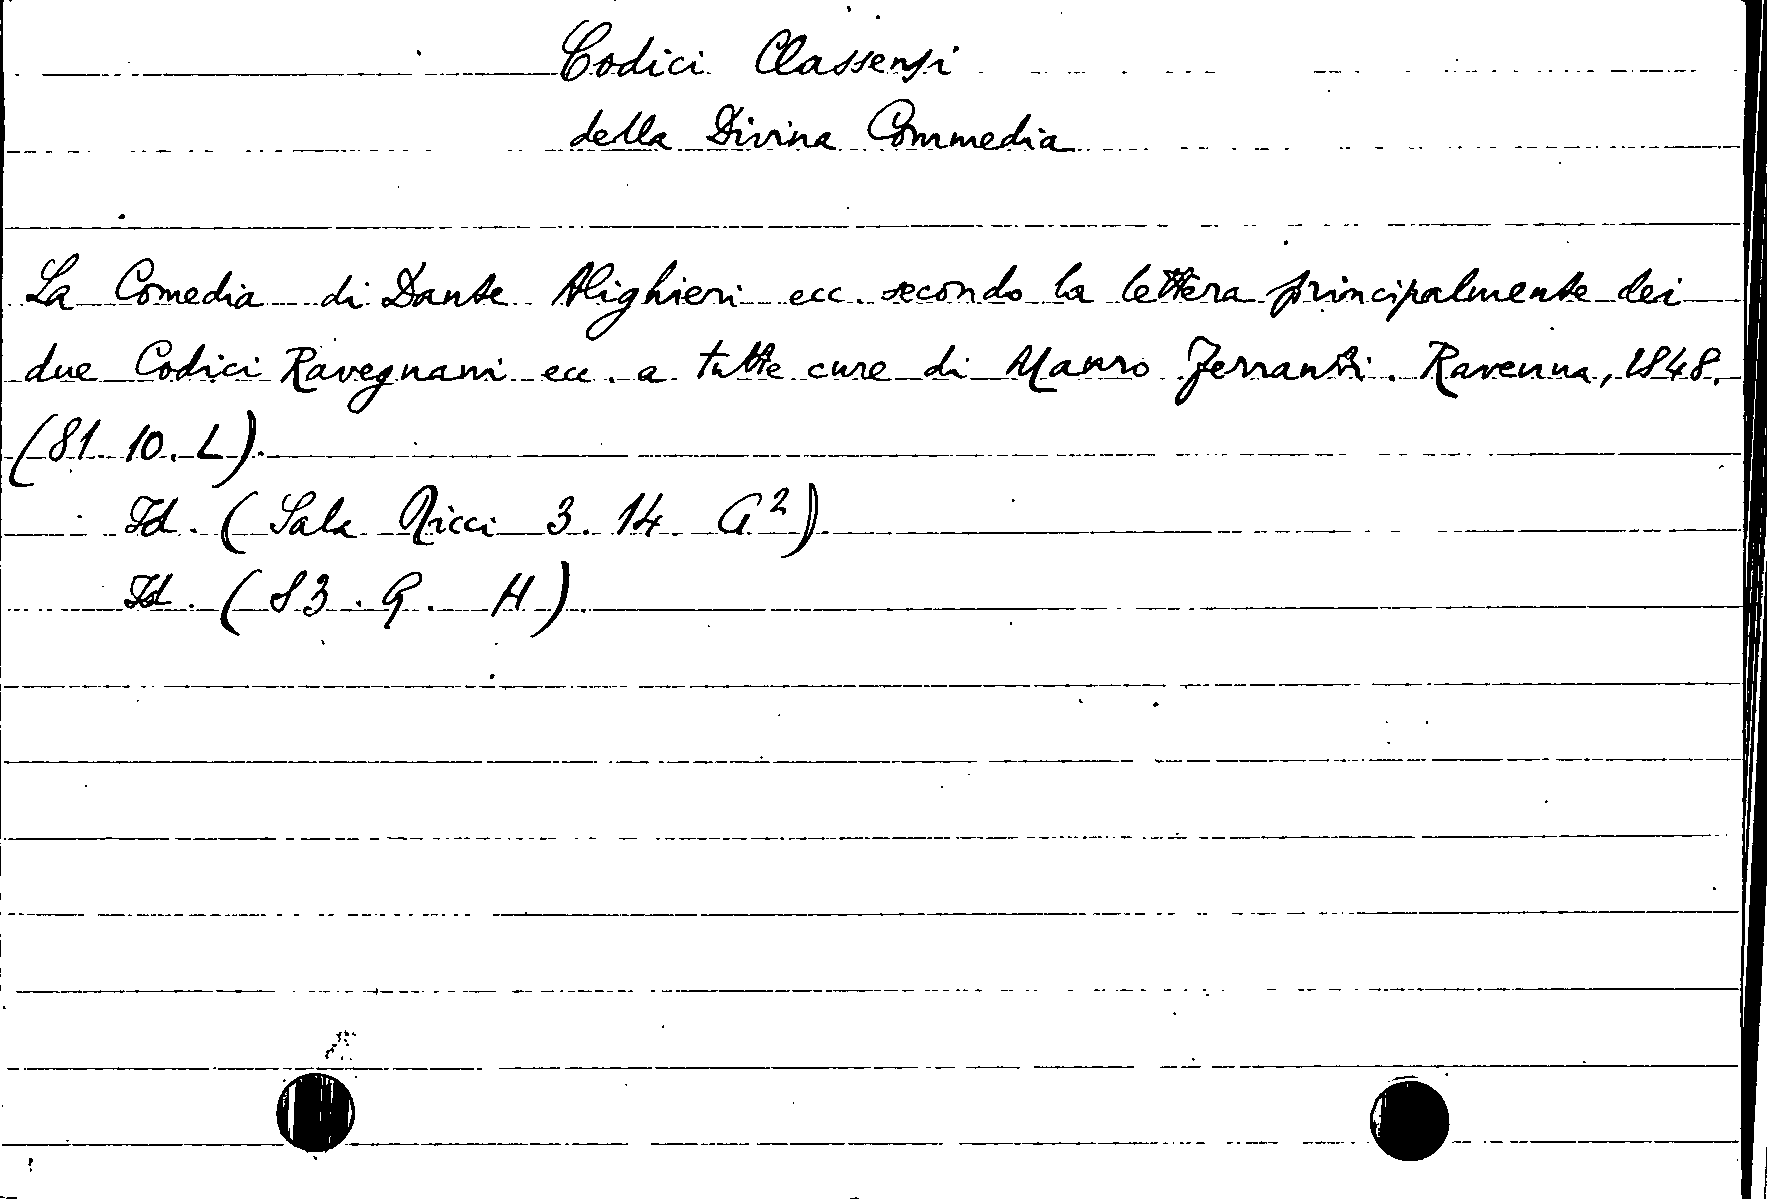 Codici Classensi
della Divina Commedia
La Comedia di Dante Alighieri ecc. secondo la lettera principalmente dei
due Codici Ravegnani ecc. a tutte cure di Mauro Ferranti. Ravenna, 1848.
(81. 10. L).
Id. (Sala Ricci 3. 14. G²)
Id. (83. G. H)